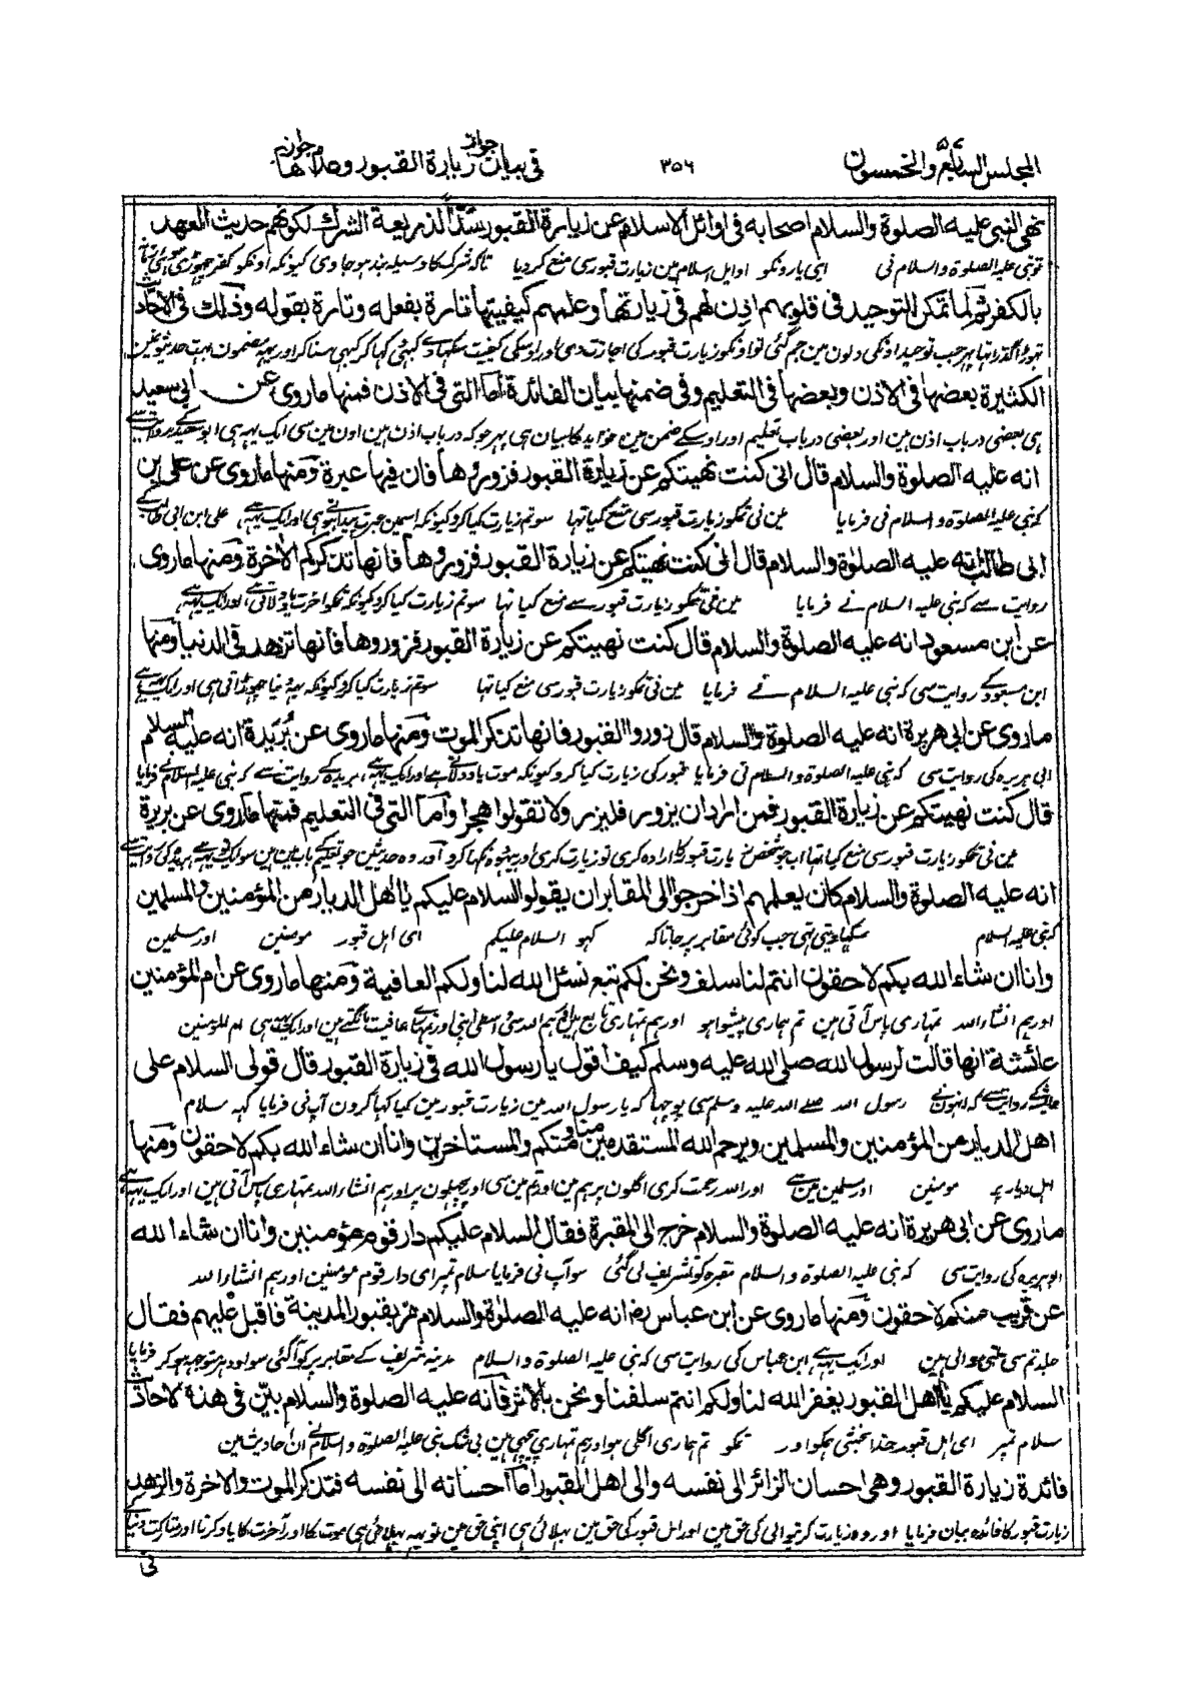 المجلس السابع والخمسون
٣٥٦
في بيان جواز زيارة القبور وعدم جوازه
نهى النبي عليه الصلوة والسلام اصحابه فى اوائل الاسلام عن زيارة القبور سدًّا لذريعة الشرك لكونهم حديث العهد
تو نبی علیہ الصلوة والسلام نی اپنی یارونکو اوایل اسلام مین زیارت قبور سی منع کردیا تاکہ شرک کا وسیلہ بند ہوجاوی کیونکہ اونکو کفر چھوڑی
بالكفر ثم لما تمكن التوحيد فى قلوبهم اذن لهم فى زيارتها وعلمهم كيفيتها تارة بفعله وتارة بقوله وذلك فى الاحاديث
تہوڑا گذرا تہا پہر جب توحید اونکی دلون مین جم گئی تو اونکو زیارت قبور کی اجازت دی اور اوسکی کیفیت سکہادی کبہی کہا کر کبہی سناکر اور یہہ مضمون بہت حدیثونمین
الكثيرة بعضها فى الاذن وبعضها فى التعليم وفى ضمنها بيان الفائدة اما التى فى الاذن فمنها ما روى عن ابى سعيد
ہی بعضی درباب اذن ہین اور بعضی درباب تعلیم اور اوسکے ضمن مین فواید کا بیان ہی پہر جو کہ درباب اذن ہین اون مین سی ایک یہہ ہی ابو سعید
انه عليه الصلوة والسلام قال انى كنت نهيتكم عن زيارة القبور فزوروها فان فيها عبرة ومنها ما روى عن على بن
کہ نبی علیہ الصلوة والسلام نی فرمایا مین نی تمکو زیارت قبور سی منع کیا تہا سو تم زیارت کیا کرو کیونکہ اسمین عبرت پیدا ہوتی ہی اور ایک یہہ ہے علی ابن ابی طالب
ابى طالب انه عليه الصلوة والسلام قال انى كنت نهيتكم عن زيارة القبور فزوروها فانها تذكركم الاخرة ومنها ما روى
روایت سے کہ نبی علیہ السلام نے فرمایا مین نی تمکو زیارت قبور سے منع کیا تہا سو تم زیارت کیا کرو کیونکہ تمکو آخرت یاد دلاتی ہے اور ایک یہہ ہے
عن ابن مسعود انه عليه الصلوة والسلام قال كنت نهيتكم عن زيارة القبور فزوروها فانها تزهد فى الدنيا ومنها
ابن مسعود کے روایت سی کہ نبی علیہ السلام نے فرمایا مین نی تمکو زیارت قبور سی منع کیا تہا سو تم زیارت کیا کرو کیونکہ یہہ دنیا چھوڑاتی ہی اور ایک یہہ ہے
ما روى عن ابى هريرة انه عليه الصلوة والسلام قال زوروا القبور فانها تذكر الموت ومنها ما روى عن بريدة انه عليه السلام
ابی ہریرہ کی روایت سی کہ نبی علیہ الصلوة والسلام نی فرمایا قبور کی زیارت کیا کرو کیونکہ موت یاد دلاتی ہے اور ایک یہہ ہے بریدہ کے روایت سے کہ نبی علیہ السلام نے فرمایا
قال كنت نهيتكم عن زيارة القبور فمن اراد ان يزور فليزر ولا تقولوا هجرا واما التى فى التعليم فمنها ما روى عن بريرة
مین نی تمکو زیارت قبور سی منع کیا تہا اب جو شخص زیارت قبور کا ارادہ کری تو زیارت کری اور بیہودہ نکہا کرو اور وہ حدیثین جو تعلیم کے باب مین ہین سو ایک
انه عليه الصلوة والسلام كان يعلمهم اذا خرجوا الى المقابر ان يقولوا السلام عليكم يا اهل الديار من المؤمنين والمسلمين
کہ نبی علیہ السلام سکہادیتی تہی جب کوئی مقابر پر جاتا کہ کہو السلام علیکم ای اہل قبور مومنین اور مسلمین
وانا ان شاء الله بكم لاحقون انتم لنا سلف ونحن لكم تبع نسئل الله لنا ولكم العافية ومنها ما روى عن ام المؤمنين
اور ہم انشاء اللہ تمہاری پاس آتی ہین تم ہماری پیشوا ہو اور ہم تمہاری تابع ہین ہم اللہ سی واسطی اپنی اور تمہارے عافیت مانگتے ہین اور ایک یہہ ہی ام المومنین
عائشة انها قالت لرسول الله صلى الله عليه وسلم كيف اقول يا رسول الله فى زيارة القبور قال قولى السلام على
عائشہ کے روایت سے کہ انہون نے رسول اللہ صلے اللہ علیہ وسلم سی پوچہا کہ یا رسول اللہ مین زیارت قبور مین کیا کہا کرون آپ نی فرمایا کہہ سلام
اهل الديار من المؤمنين والمسلمين ويرحم الله المستقدمين منا ومنكم والمستاخرين وانا ان شاء الله بكم لاحقون ومنها
اہل دیار پر مومنین اور مسلمین مین سے اور اللہ رحمت کری اگلون پر ہم مین اور تم مین سی اور پچہلون پر اور ہم انشاء اللہ تمہاری پاس آتی ہین اور ایک یہہ ہے
ما روى عن ابى هريرة انه عليه الصلوة والسلام خرج الى المقبرة فقال السلام عليكم دار قوم مؤمنين وانا ان شاء الله
ابوہریرہ کی روایت سی کہ نبی علیہ الصلوة والسلام مقبرہ کو تشریف لی گئی سو آپ نی فرمایا سلام تمپر ای دار قوم مومنین اور ہم انشاء اللہ
عن قريب منكم لاحقون ومنها ما روى عن ابن عباس رض انه عليه الصلوة والسلام مر بقبور المدينة فاقبل عليهم فقال
جلد تم سی ملنی والی ہین اور ایک یہہ ہے ابن عباس کی روایت سی کہ نبی علیہ الصلوة والسلام مدینہ شریف کے مقابر پر کو آ گئی سو اودہر متوجہ ہو کر فرمایا
السلام عليكم يا اهل القبور يغفر الله لنا ولكم انتم سلفنا ونحن بالاثر فانه عليه الصلوة والسلام بين فى هذه الاحاديث
سلام تمپر ای اہل قبور خدا بخشی ہمکو اور تمکو تم ہماری اگلی ہو اور ہم تمہاری پیچہی ہین بی شک نبی علیہ الصلوة والسلام نے ان احادیث مین
فائدة زيارة القبور وهى احسان الزائر الى نفسه والى اهل القبور اما احسانه الى نفسه فتذكر الموت والاخرة والزهد
زیارت قبور کا فائدہ بیان فرمایا اور وہ زیارت کرنیوالی کی حق مین اور اہل قبور کی حق مین بہلائی ہی اپنی حق مین تو یہہ بہلائی ہی موت کا اور آخرت کا یاد کرنا اور
فى